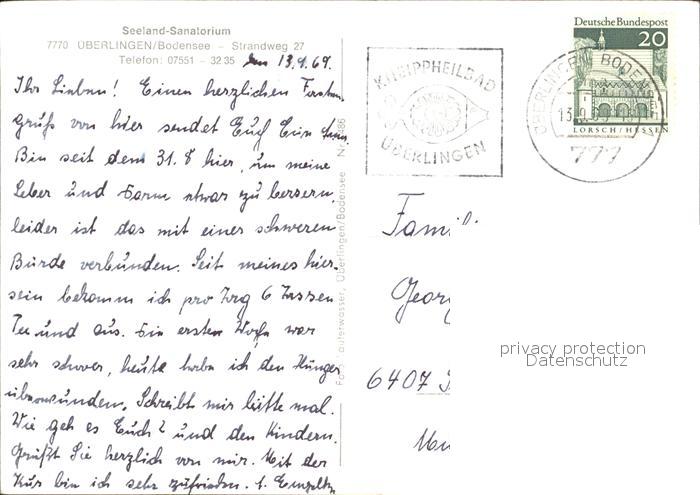 Seeland-Sanatorium
7770 ÜBERLINGEN/Bodensee - Strandweg 27
Telefon: 07551 - 3235
13.9.69.
Ihr Lieben! Einen herzlichen
gruß von hier sendet Euch Eure
Bin seit dem 31.8 hier, um meine
Leber und Darm etwas zu bessern,
leider ist das mit einer schweren
Bürde verbunden. Seit meines hier-
sein bekomm ich pro Tag 6 Tassen
Tee und aus. Die ersten Woche war
sehr schwer, heute habe ich den Hunger
überwunden. Schreibt mir bitte mal.
Wie geh es Euch? und den Kindern.
Grüßt Sie herzlich von mir. Mit der
Kur bin ich sehr zufrieden.
Lauterwasser, Überlingen/Bodensee
KNEIPPHEILBAD
ÜBERLINGEN
Deutsche Bundespost
20
LORSCH/HESSEN
ÜBERLINGEN, BODENSEE
777
Fami
Georg
6407
privacy protection
Datenschutz